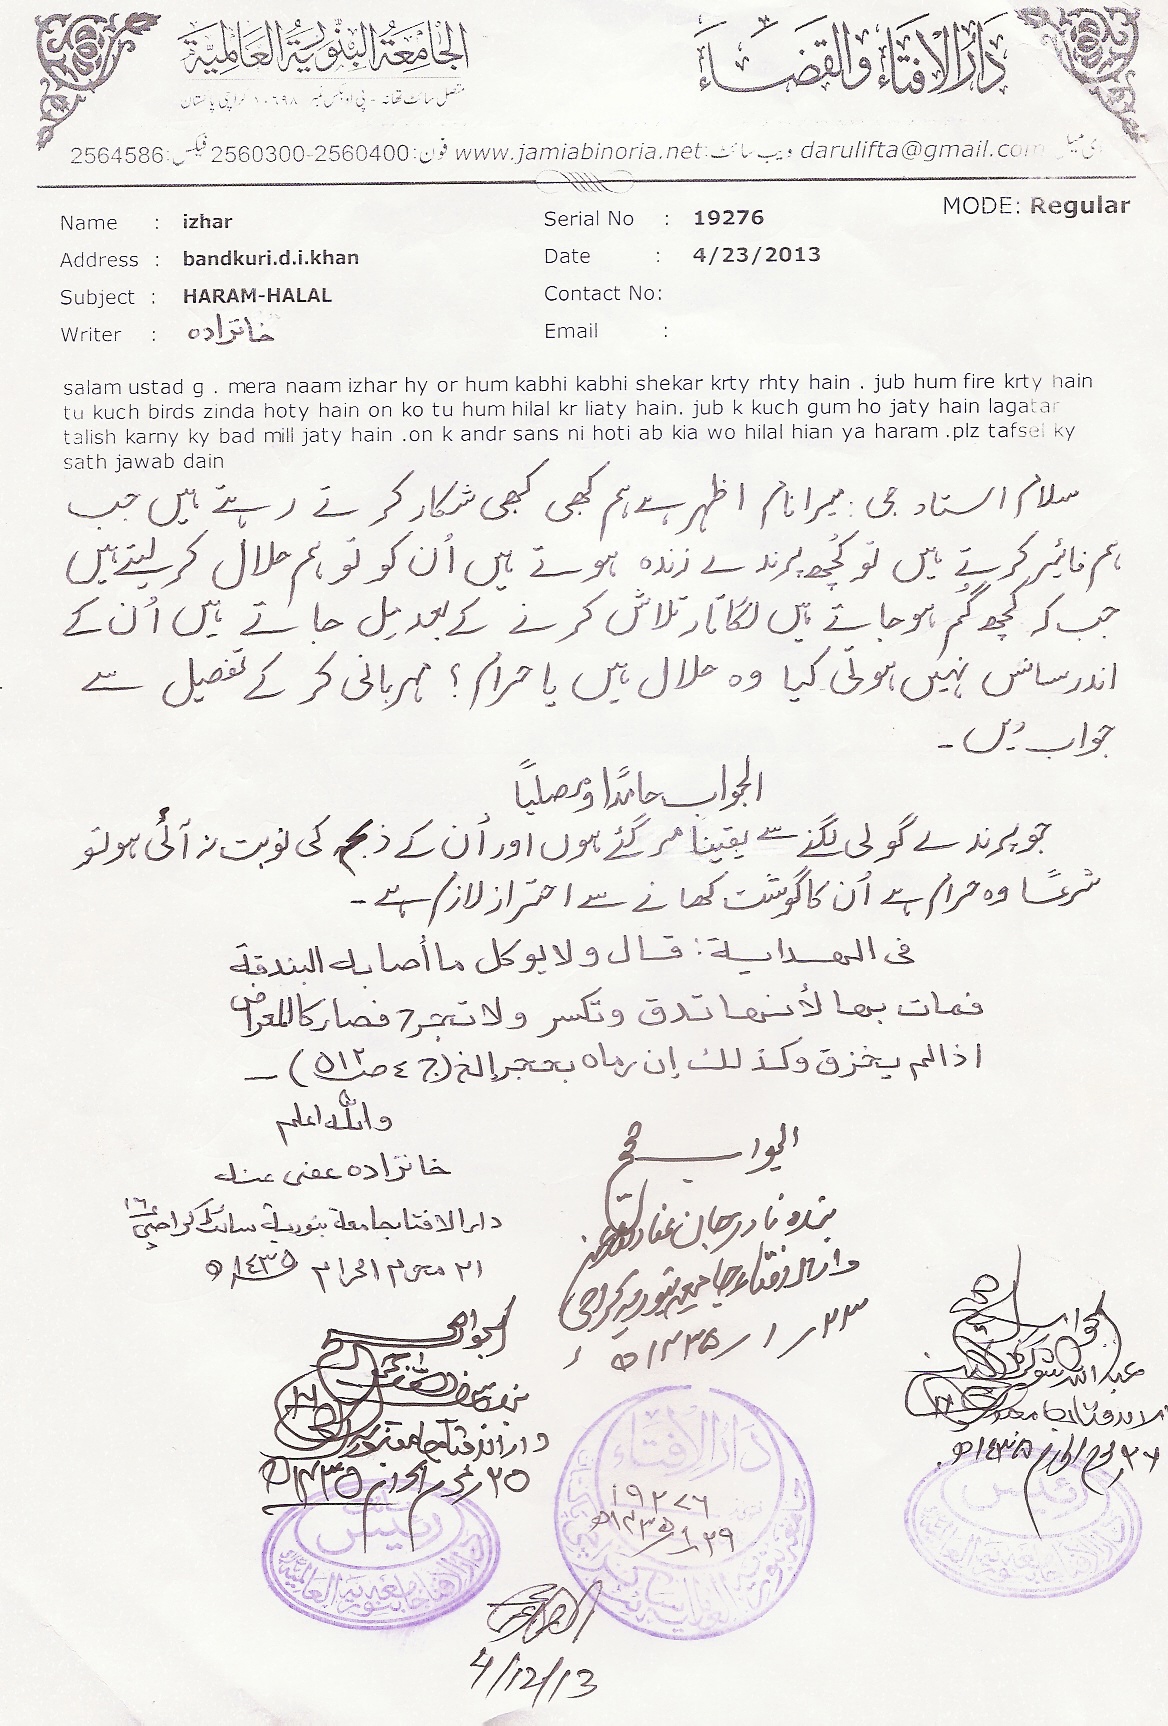 الجامعة البنورية العالمية
دار الافتاء والقضاء
متصل سائٹ تھانہ - پی او بکس نمبر ۱۰۶۹۸ کراچی پاکستان
ی میل darulifta@gmail.com ویب سائٹ: www.jamiabinoria.net فون: 2560300-2560400 فیکس: 2564586
MODE: Regular
Name : izhar
Serial No : 19276
Address : bandkuri.d.i.khan
Date : 4/23/2013
Subject : HARAM-HALAL
Contact No:
Writer : خانزادہ
Email :
salam ustad g . mera naam izhar hy or hum kabhi kabhi shekar krty rhty hain . jub hum fire krty hain
tu kuch birds zinda hoty hain on ko tu hum hilal kr liaty hain. jub k kuch gum ho jaty hain lagatar
talish karny ky bad mill jaty hain .on k andr sans ni hoti ab kia wo hilal hian ya haram .plz tafsel ky
sath jawab dain
سلام استاد جی : میرا نام اظہر ہے ہم کبھی کبھی شکار کرتے رہتے ہیں جب
ہم فائیر کرتے ہیں تو کُچھ پرندے زندہ ہوتے ہیں اُن کو تو ہم حلال کر لیتے ہیں
جب کہ کچھ گُم ہو جاتے ہیں لگاتار تلاش کرنے کے بعد مِل جاتے ہیں اُن کے
اندر سانس نہیں ہوتی کیا وہ حلال ہیں یا حرام ؟ مہربانی کر کے تفصیل سے
جواب دیں ۔
الجواب حامدًا ومصلیًا
جو پرندے گولی لگنے سے یقیناً مر گئے ہوں اور اُن کے ذبح کی نوبت نہ آئی ہو تو
شرعًا وہ حرام ہے اُن کا گوشت کھانے سے احتراز لازم ہے ۔
فی الهدایة : قال ولا یوکل ما أصابه البندقة
فمات بها لأنها تدق وتکسر ولا تجرح فصار کالمعراض
اذا لم یخزق وکذلک إن رماه بحجر إلخ (ج ٤ ص ٥١٢) ۔
واللہ اعلم
خانزادہ عفی عنہ
دار الافتاء جامعة بنوریة سائٹ کراچی ١٦
٢١ محرم الحرام ١٤٣٥ ھ
الجواب صحیح
بندہ نادر جان عفا اللہ عنہ
دار الافتاء جامعہ بنوریہ کراچی
٢٣ / ١ / ١٤٣٥ ھ
الجواب صحیح
دار الافتاء جامعہ بنوریہ
٢٥ محرم الحرام ١٤٣٥ ھ
الجواب صحیح
دار الافتاء جامعہ بنوریہ
٢٦ محرم الحرام ١٤٣٥ ھ
دار الافتاء
١٩٢٧٦
١٤٣٥/١/٢٩ ھ
رئیس
دار الافتاء جامعہ بنوریہ العالمیة
رئیس
4/12/13